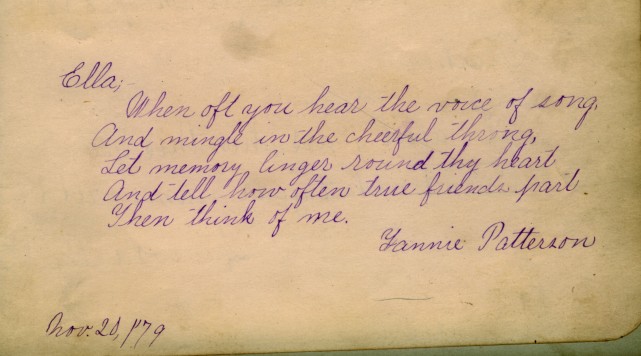 Ella;
When oft you hear the voice of song,
And mingle in the cheerful throng,
Let memory linger round thy heart
And tell how often true friends part.
Then think of me.
Fannie Patterson
Nov.